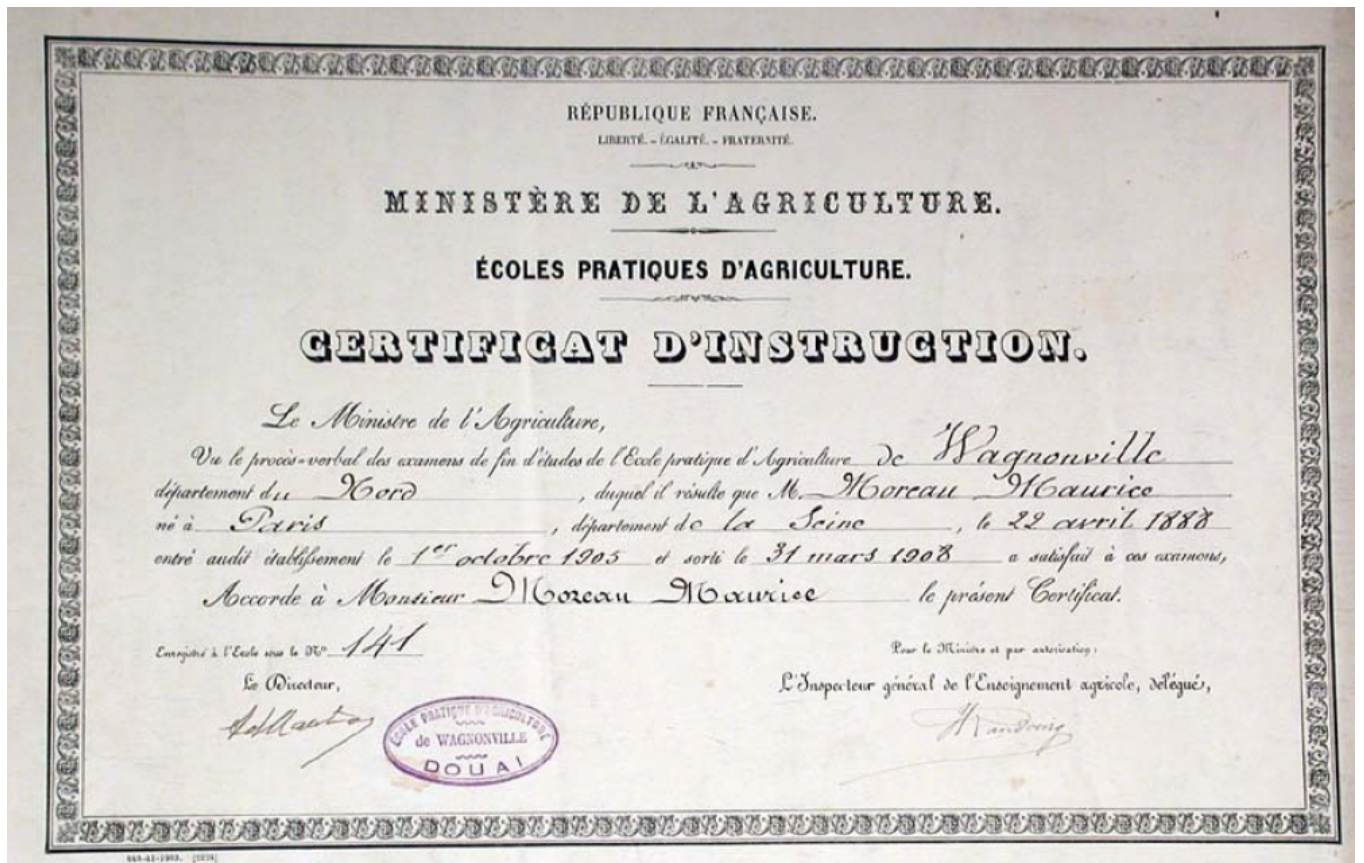 RÉPUBLIQUE FRANÇAISE.
LIBERTÉ. – ÉGALITÉ. – FRATERNITÉ.
MINISTÈRE DE L'AGRICULTURE.
ÉCOLES PRATIQUES D'AGRICULTURE.
CERTIFICAT D'INSTRUCTION.
Le Ministre de l'Agriculture,
Vu le procès-verbal des examens de fin d'études de l'Ecole pratique d'Agriculture de Wagnonville
département du Nord, duquel il résulte que M. Moreau Maurice
né à Paris, département de la Seine, le 22 avril 1888
entré audit établissement le 1er octobre 1905 et sorti le 31 mars 1908 a satisfait à ces examens,
Accorde à Monsieur Moreau Maurice le présent Certificat.
Enregistré à l'Ecole sous le No 141
Pour le Ministre et par autorisation:
Le Directeur,
L'Inspecteur général de l'Enseignement agricole, délégué,
ÉCOLE PRATIQUE D'AGRICULTURE
de WAGNONVILLE
DOUAI